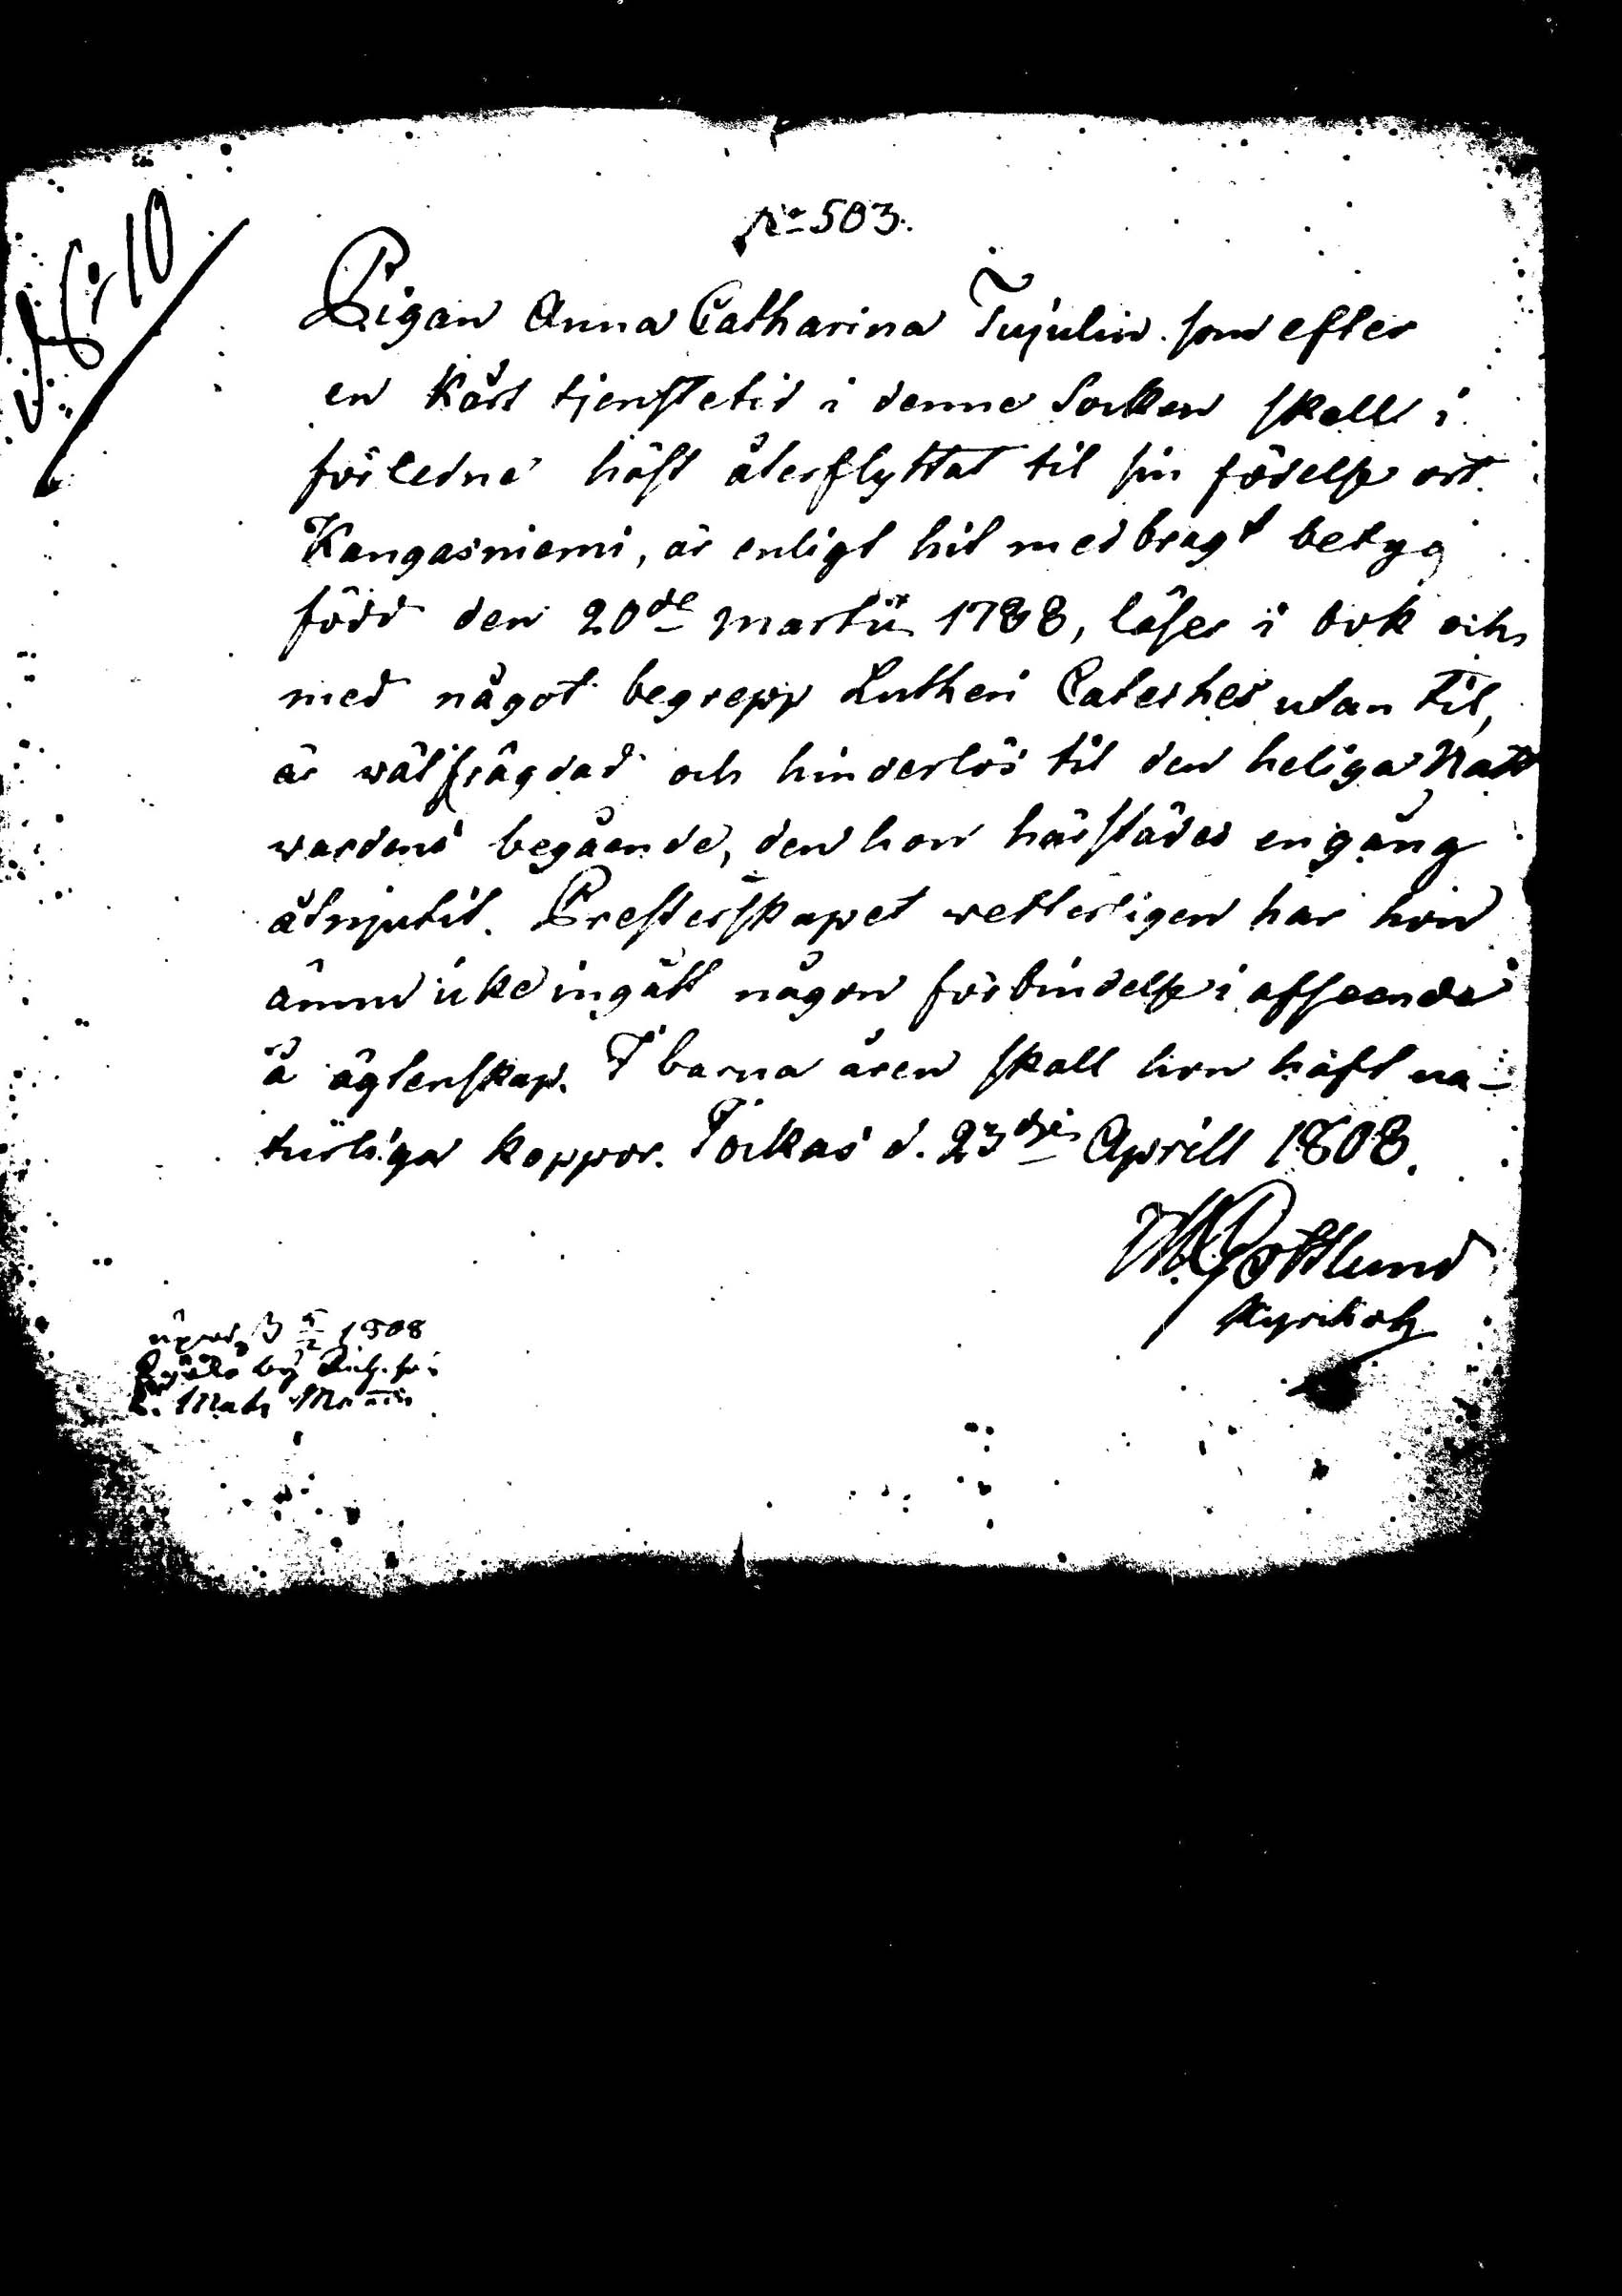 No 503.
No 10
Pigan Anna Catharina Tujulin som efter
en kårt tjenstetid i denne Socken skall i
förledne höst återflyttat til sin födelse ort
Kangasniemi, är enligt hit medbragt betyg
född den 20de Martii 1788, läser i bok och
med något begrepp Lutheri Cateches utan til,
är wälfrägdad och hinderlös til den heliga Natt
wardens begående, den hon härstädes en gång
åtnjutit. Presterskapet wetterligen har hon
ännu icke ingått någon förbindelse i afseende
å ägtenskap. I barna åren skall hon haft na-
turliga koppor. Jockas d. 23dje Aprill 1808.
M. Gottlund
Kyrckoh
1808
by
Mats